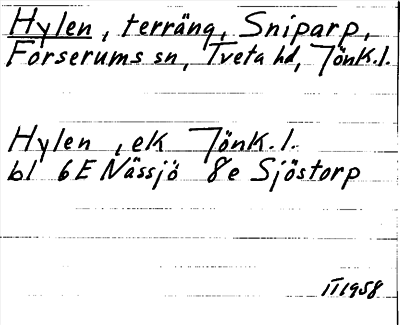 Hylen, terräng, Sniparp,
Forserums sn, Tveta hd, Jönk.l.
Hylen , ek Jönk.l.
bl 6E Nässjö 8e Sjöstorp
III1958